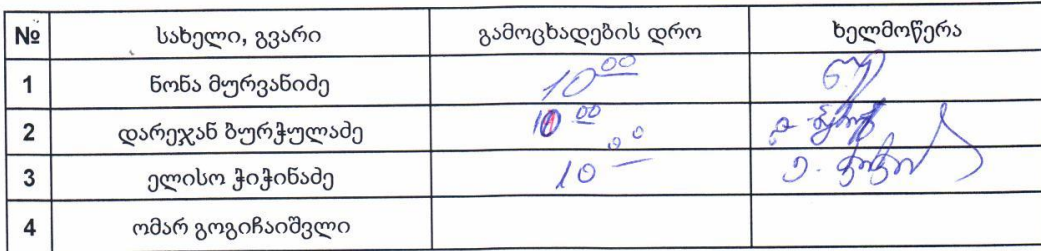 № სახელი, გვარი გამოცხადების დრო ხელმოწერა
1 ნონა მურვანიძე 10 00
2 დარეჯან ბურჭულაძე 10 00
3 ელისო ჭიჭინაძე 10 00
4 ომარ გოგიჩაიშვლი